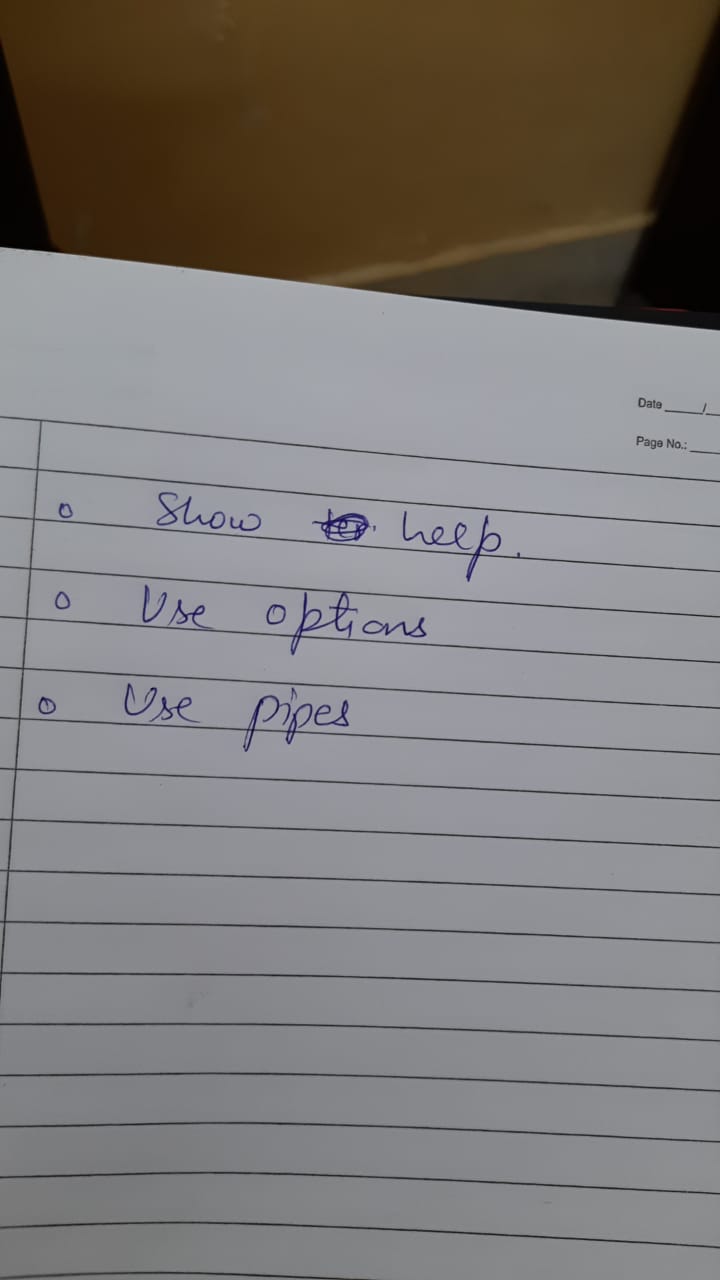 Date ____/__
Page No.: ___
o Show help.
o Use options
o Use pipes